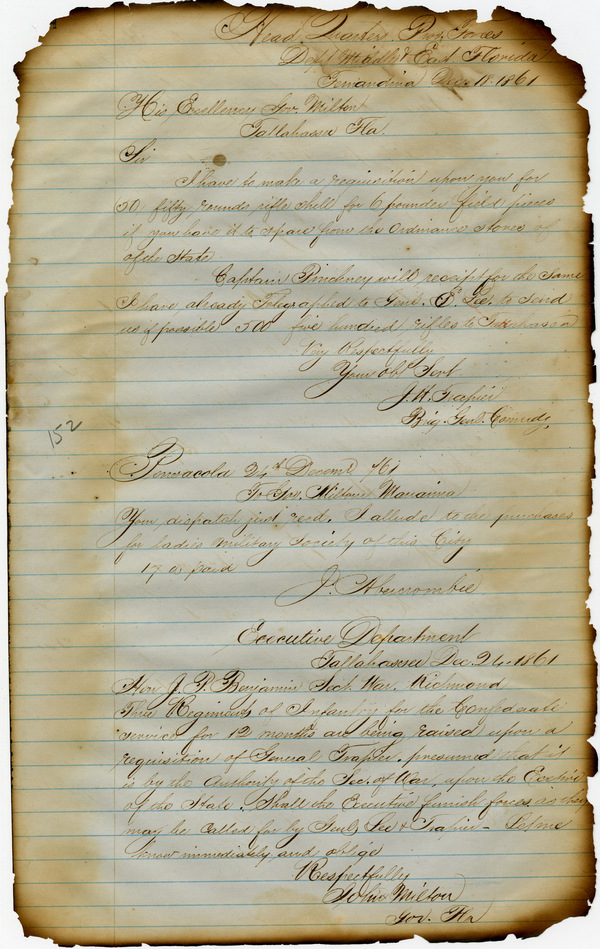 Head Quarters Prov. Forces
Dept Middle & East Florida
Fernandina Dec. 18. 1861
His Excellency Gov. Milton
Tallahassee Fla.
Sir
I have to make a requisition upon you for
50 fifty rounds rifle shell for 6 pounder field pieces
if you have it to spare from the Ordinance stores of
of the State.
Captain Pinckney will receipt for the same
I have already Telegraphed to Genl. Lee, to send
us if possible 500 five hundred rifles to
Very Respectfully
Your Obt Servt
J. H. Trapier
Brig. Genl. Comndg,
152
Pensacola 24th Decemr /61
To Gov. Milton Marianna
Your dispatch just recd. I allude to the purchases
for ladies Military Society of this City
17 a paid
J. Abercrombie
Executive Department
Tallahassee Dec. 1861
Hon J. P. Benjamin Sect. War. Richmond
Two Regiments of Infantry for the Confederate
service for 12 months are being raised upon a
requisition of General Trapier, presumed that it
is by the authority of the Sec. of War, upon the Executive
of the State. Shall the Executive furnish forces, as they
may be called for by Genls Lee & Trapier – Let me
know immediately and oblige
Respectfully
John Milton
Gov. Fla